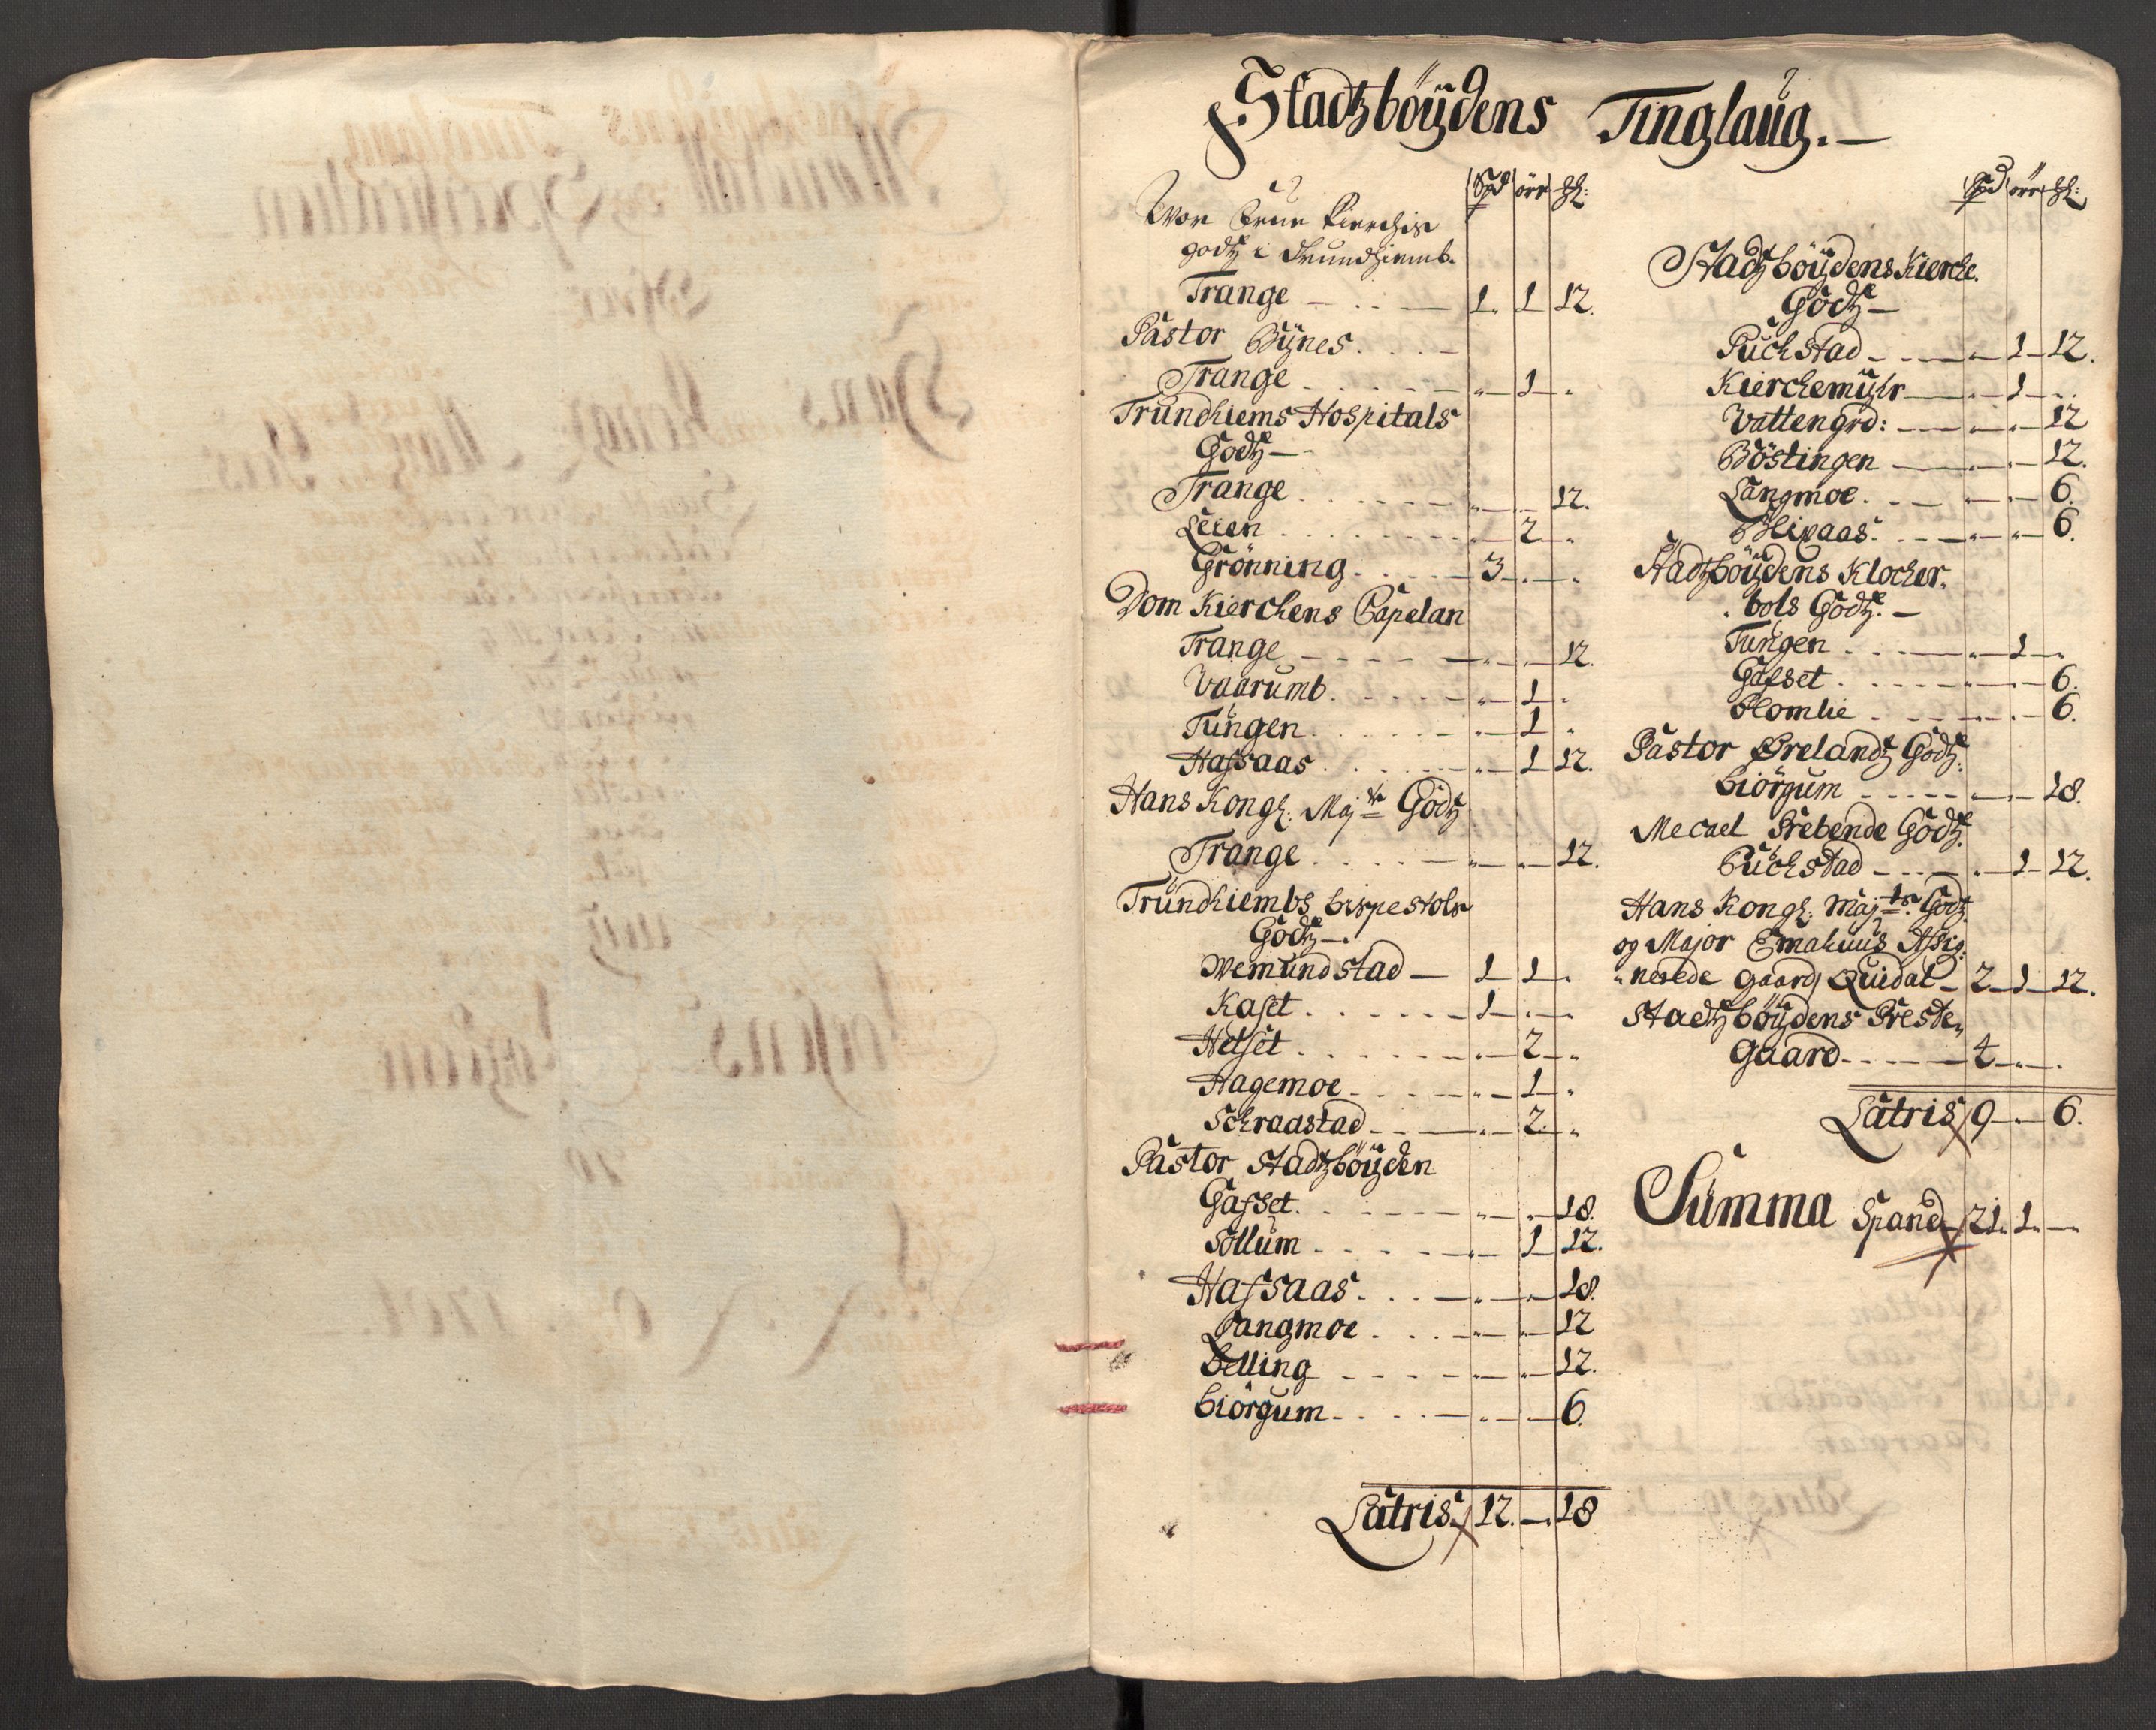 Stadtzböÿdens Tinglaug.
Spd örr Mk:
Vor Frue Kierchis
godtz i Trundhiemb.
Trange 1. 1 12.
Pastor Bÿnes.
Trange " 1 "
Trundhiems Hospitals
Godtz
Trange " " 12.
Leien " 2 "
Grönning 3 " "
Dom Kierchens Capelan
Trange " " 12.
Vaarumb " 1 "
Tungen " 1 "
Hafsaas " 1 12.
Hans Kongl: Maj:ts Godtz
Trange " " 12.
Trundhiembs bispestols
Godtz
Wemundstad 1 1 "
Kaset 1 " "
Helset " 2 "
Hagemoe " 1 "
Schraastad " 2 "
Pastor Stadtzböÿden
Gafset " " 18.
Sollum " 1 12.
Hafsaas " " 18.
Langmoe " " 12
Belling " " 12.
Biörgum " " 6.
Latris 12. " 18
Spd örr Mk:
Stadtzböÿdens Kierche
Godtz
Puchstad " 1 12.
Kierchemÿhr " 1 "
Vattengrd: " " 12
Böstingen " " 12.
Langmoe " " 6.
Stadtzböÿdens Klocher
bols Godtz.
Tungen " 1 "
Gafset " " 6.
Plomlie " " 6.
Pastor Ørelandtz Godtz.
Biörgum " " 18.
Mecael Prebende Godtz.
Puchstad " 1 12.
Hans Kongl: Maj:ts Godtz
og Major Emahuus Assig-
nerede gaard Quidal 2 1 12.
Stadtzböÿdens Preste
Gaard 4 " "
Latris 9 " 6.
Summa Spand 21. 1. "